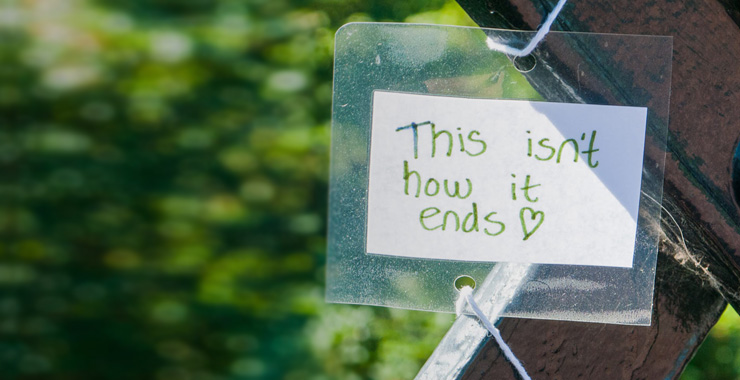 This isn't
how it
ends♡